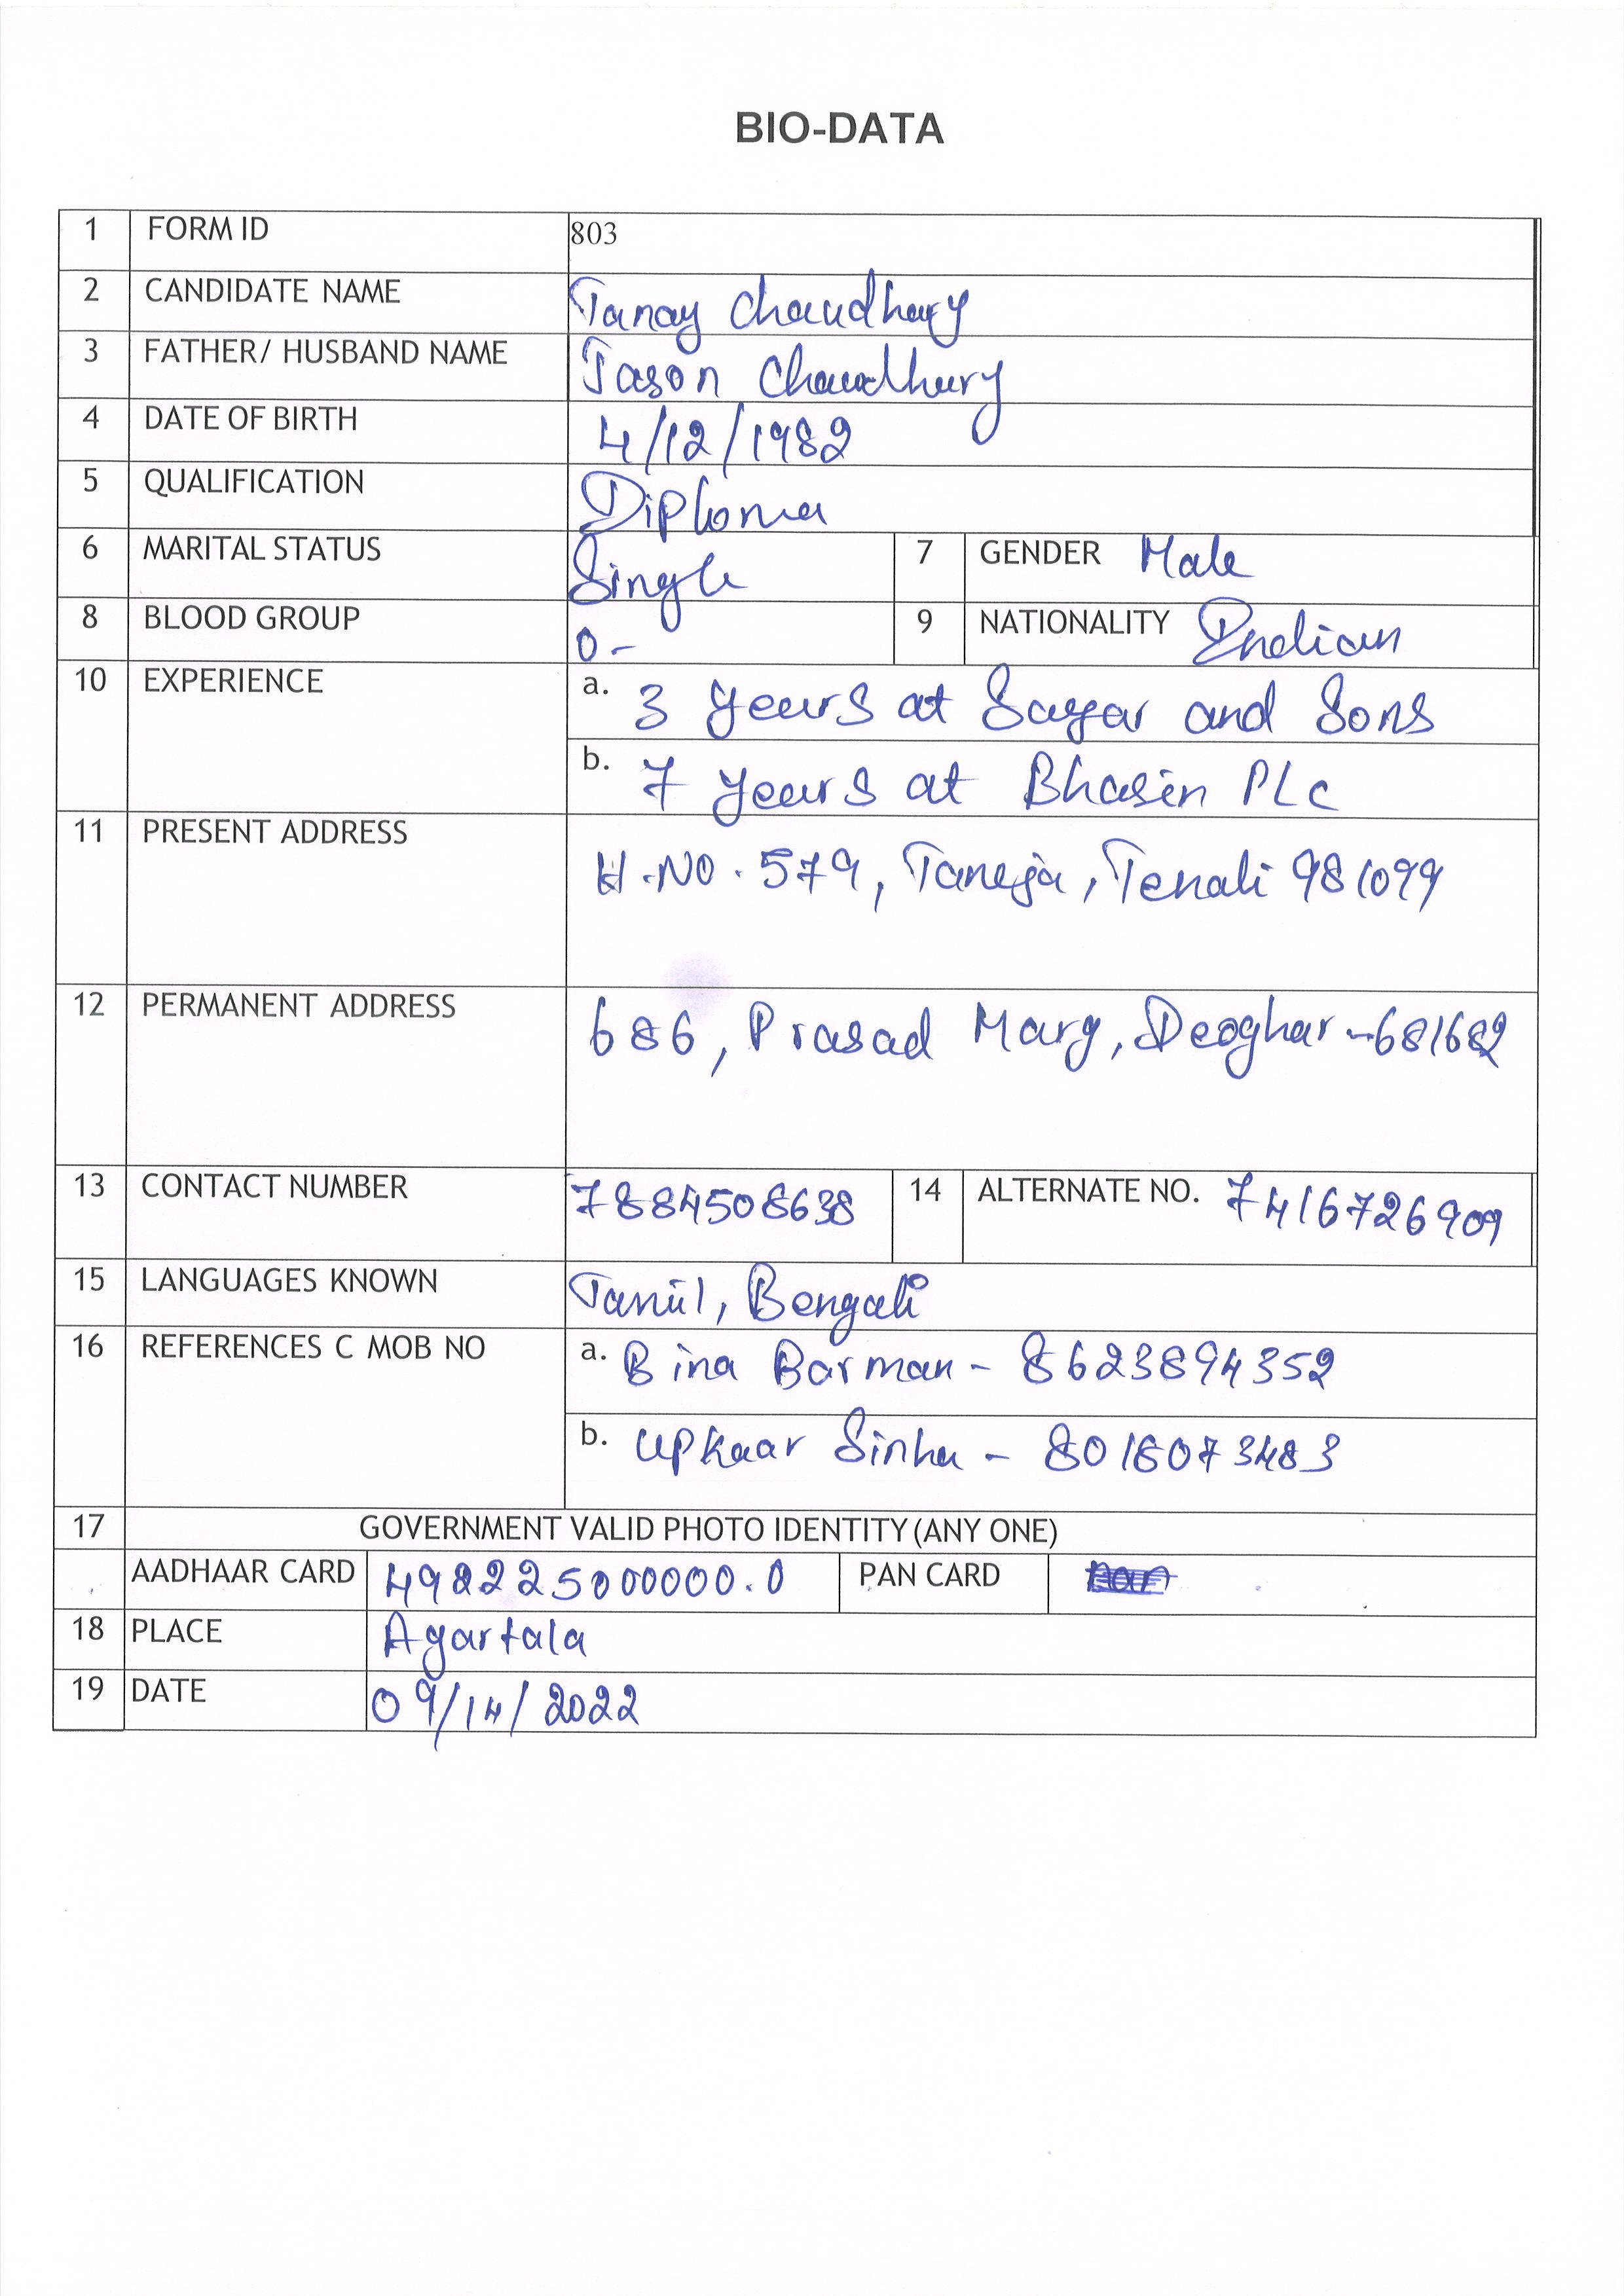 BIO-DATA
1 FORM ID 803
2 CANDIDATE NAME Tanay Chaudhary
3 FATHER/ HUSBAND NAME Jason Chaudhury
4 DATE OF BIRTH 4/12/1982
5 QUALIFICATION Diploma
6 MARITAL STATUS Single 7 GENDER Male
8 BLOOD GROUP O- 9 NATIONALITY Indian
10 EXPERIENCE a. 3 years at Sagar and Sons
b. 7 years at Bhasin PLC
11 PRESENT ADDRESS H.NO. 579, Taneja, Tenali 981099
12 PERMANENT ADDRESS 686, Prasad Marg, Deoghar-681682
13 CONTACT NUMBER 7884508638 14 ALTERNATE NO. 7416726909
15 LANGUAGES KNOWN Tamil, Bengali
16 REFERENCES C MOB NO a. Bina Barman - 8623894352
b. Upkaar Sinha - 8018073483
17 GOVERNMENT VALID PHOTO IDENTITY (ANY ONE)
AADHAAR CARD 492225000000.0 PAN CARD
18 PLACE Agartala
19 DATE 09/14/2022